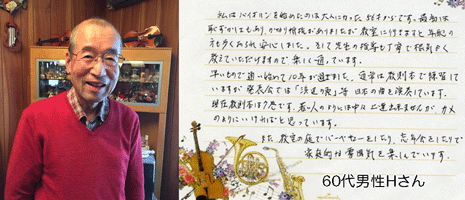 私はバイオリンを始めたのは大人になった65才からです。最初は
恥ずかしさもあり、かなり抵抗がありましたが教室に行きますと、年配の
方も多くみられ安心しました。そして先生の指導も丁寧で根気よく
教えていただけますので楽しく通っています。
早いもので通い始めて10年が過ぎました。通常は教則本で練習して
いますが発表会では「浜辺の歌」等 日本の曲を演奏しています。
現在教則本は7巻です。若い人のようには中々上達出来ませんが、カメ
のようにいければと思っています。
また教室の庭でバーベキューをしたり、忘年会をしたりで
家庭的な雰囲気を楽しんでいます。
60代男性Hさん